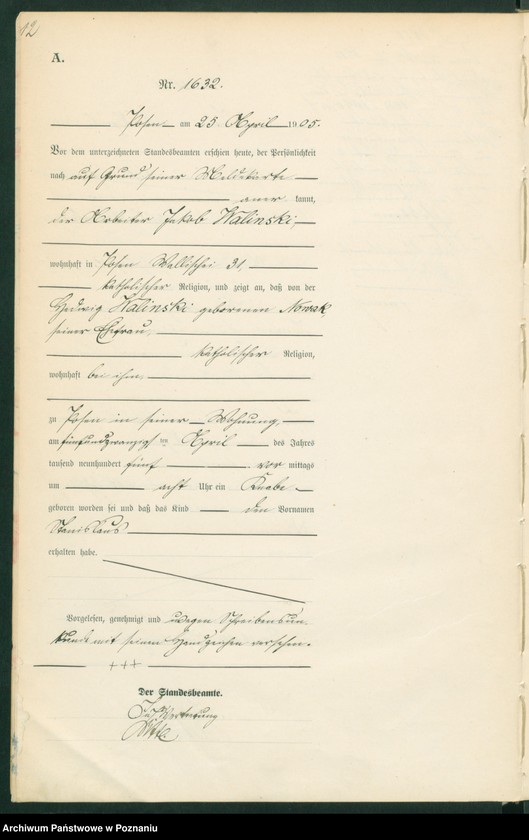 12
A.
Nr. 1632.
Posen am 25 April 1905.
Vor dem unterzeichneten Standesbeamten erschien heute, der Persönlichkeit
nach auf Grund seiner Meldekarte
aner kannt,
der Arbeiter Jakob Walinski,
wohnhaft in Posen Wallischei 31,
katholischer Religion, und zeigt an, daß von der
Hedwig Walinski geborenen Nowak,
seiner Ehefrau,
katholischer Religion,
wohnhaft bei ihm,
zu Posen in seiner Wohnung,
am fünfundzwanzigsten April des Jahres
tausend neunhundert fünf vor mittags
um acht Uhr ein Knabe
geboren worden sei und daß das Kind den Vornamen
Stanislaus
erhalten habe.
Vorgelesen, genehmigt und wegen Schreibensun-
kunde mit seinem Handzeichen versehen.
+++
Der Standesbeamte.
In Vertretung
Archiwum Państwowe w Poznaniu